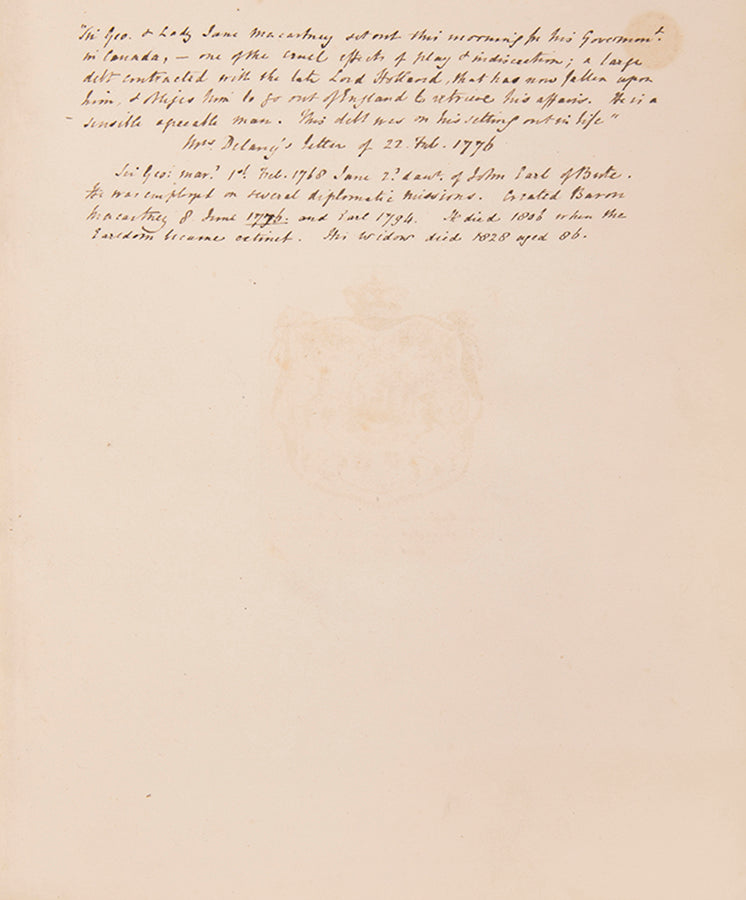 "Sir Geo. & Lady Jane Macartney set out this morning for his Governmt.
in Canada, — one of the cruel effects of play & indiscretion; a large
debt contracted with the late Lord Holland, that has now fallen upon
him, & obliges him to go out of England to retrieve his affairs. He is a
sensible agreeable man. This debt was on his setting out in life"
Mrs. Delany's letter of 22 Feb. 1776
Sir Geo: mard. 1st. Feb. 1768 Jane 2d. daur. of John Earl of Bute.
He was employed on several diplomatic missions. Created Baron
Macartney 8 June 1776. and Earl 1794. He died 1806 when the
Earldom became extinct. His widow died 1828 aged 86.